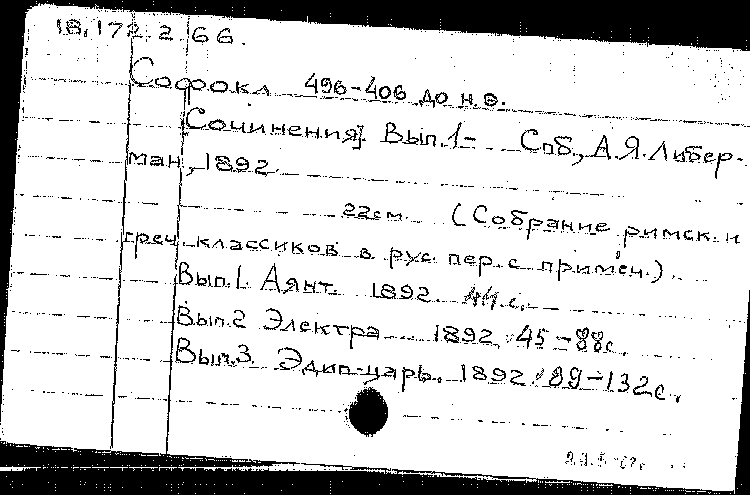 18.172.2.66.
Софокл 496-406 до н.э.
[Сочинения] Вып.1- Спб., А.Я.Либер-
ман, 1892.
22см. (Собрание римск. и
греч. классиков в рус. пер. с примеч.).
Вып.1. Аянт. 1892. 44 с.
Вып.2 Электра 1892. 45-88с.
Вып.3 Эдип-царь. 1892. 89-132с.